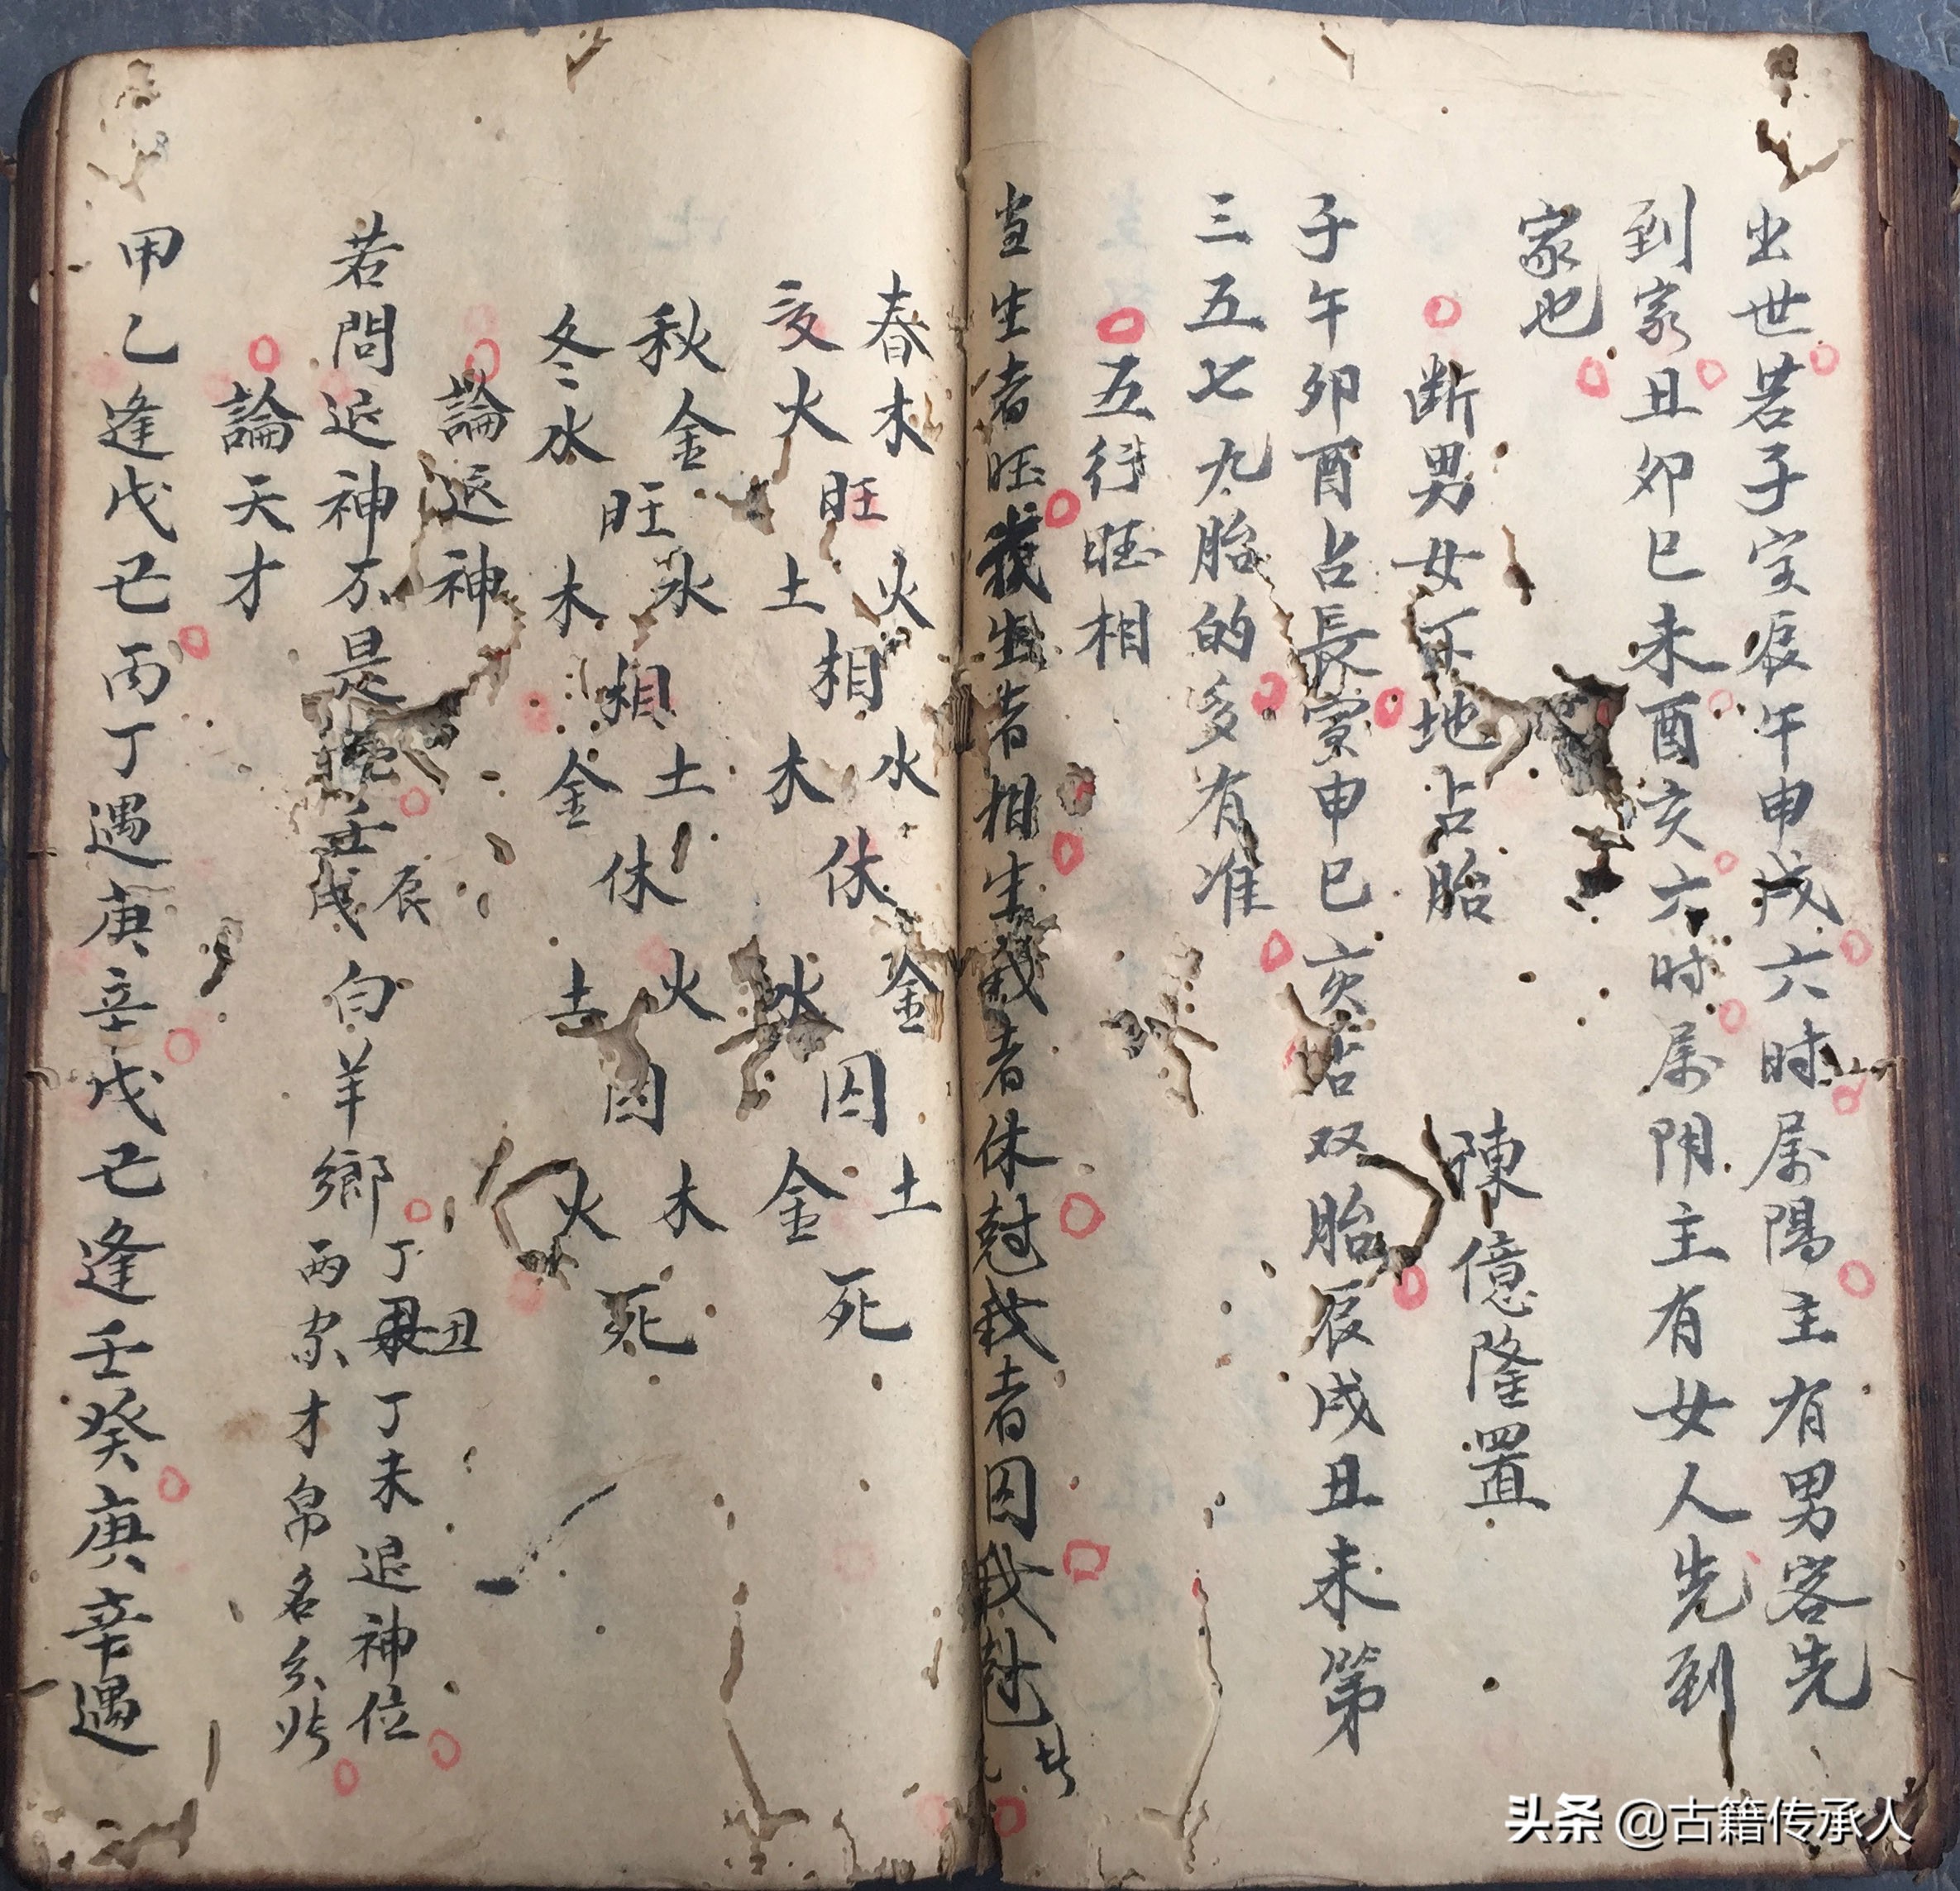 出世若子寅辰午申戌六时属陽主有男客先
到家丑卯巳未酉亥六时属阴主有女人先到
家也
断男女下地占胎
陳億隆置
子午卯酉占長寅申巳亥占双胎辰戌丑未第
三五七九胎的多有准
五行旺相
当生者旺我生者相生我者休尅我者囚我尅
春木旺火相水休金囚土死
火土木金
秋金旺水相土休火囚木死
冬水木金土火
論返神
若問返神不是壬辰戌白羊鄉丁丑丁未退神位
两家才帛名
論天才
甲乙逢戊己丙丁遇庚辛戊己逢壬癸庚辛遇
头条 @古籍传承人